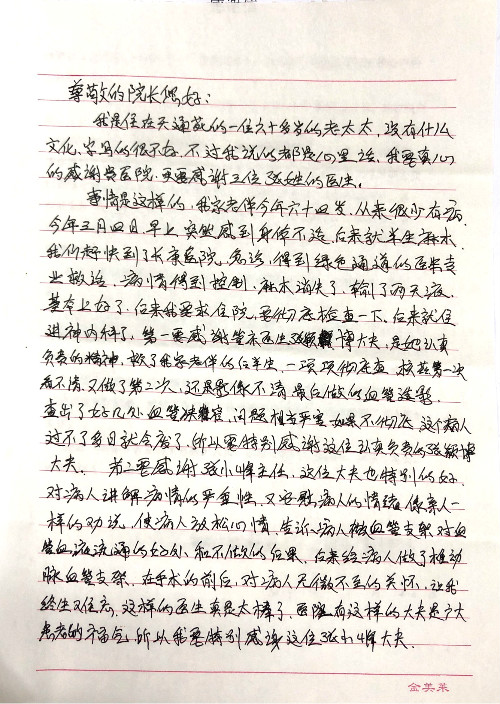 尊敬的院长您好:
我是住在天通苑的一位六十多岁的老太太,没有什么
文化,字写的很不好,不过我说的都是心里话,我要真心
的感谢贵医院,更要感谢三位张姓的医生。
事情是这样的,我家老伴今年六十四岁,从来很少有病,
今年三月四日早上突然感到身体不适,后来就半生麻木.
我们赶快到了长庚医院,急诊,得到绿色通道的医生专
业救治,病情得到控制,麻木消失了,输了两天液,
基本上好了,后来我要求住院,要彻底检查一下,后来就住
进神内科了,第一要感谢管床医生张颖博大夫,是她认真
负责的精神,救了我家老伴的后半生,一项项彻底查,核磁第一次
看不清,又做了第二次,还是影像不清最后做的血管造影.
查出了好几处血管狭窄,问题相当严重,如果不彻底,这个病人
过不了多日就会废了,所以要特别感谢这位认真负责的张颖博
大夫. 第二要感谢张小峰主任,这位大夫也特别的好.
对病人讲解病情的严重性,又安慰病人的情绪,像亲人一
样的劝说,使病人放松心情,告诉病人做血管支架,对血
管血液流通的好处,和不做的后果,后来给病人做了椎动
脉血管支架,在手术的前后,对病人无微不至的关怀,让我
终生又住忘,这样的医生真是太棒了,医院有这样的大夫是广大
患者的福气,所以我要特别感谢这位张小峰大夫.
金美莱